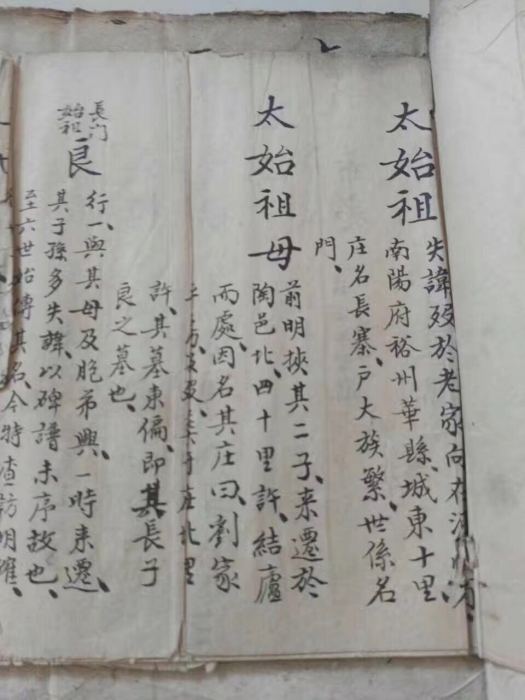 太始祖
失諱歿於老家向在河南
南陽府裕州華縣城東十里
庄名長寨戶大族繁世係名
門
太始祖母
前明挾其二子来遷於
陶邑北四十里許結廬
而處因名其庄曰劉家
庄北里
許其墓東偏即其長子
良之墓也
長門
始祖
良
行一與其母及胞弟興一時来遷
其子孫多失諱以碑譜未序故也
至六世始傳其名今特查訪明確